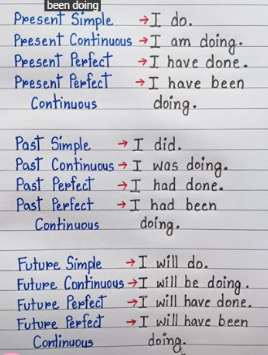 been doing
Present Simple → I do.
Present Continuous → I am doing.
Present Perfect → I have done.
Present Perfect → I have been
Continuous doing.
Past Simple → I did.
Past Continuous → I was doing.
Past Perfect → I had done.
Past Perfect → I had been
Continuous doing.
Future Simple → I will do.
Future Continuous → I will be doing.
Future Perfect → I will have done.
Future Perfect → I will have been
Continuous doing.